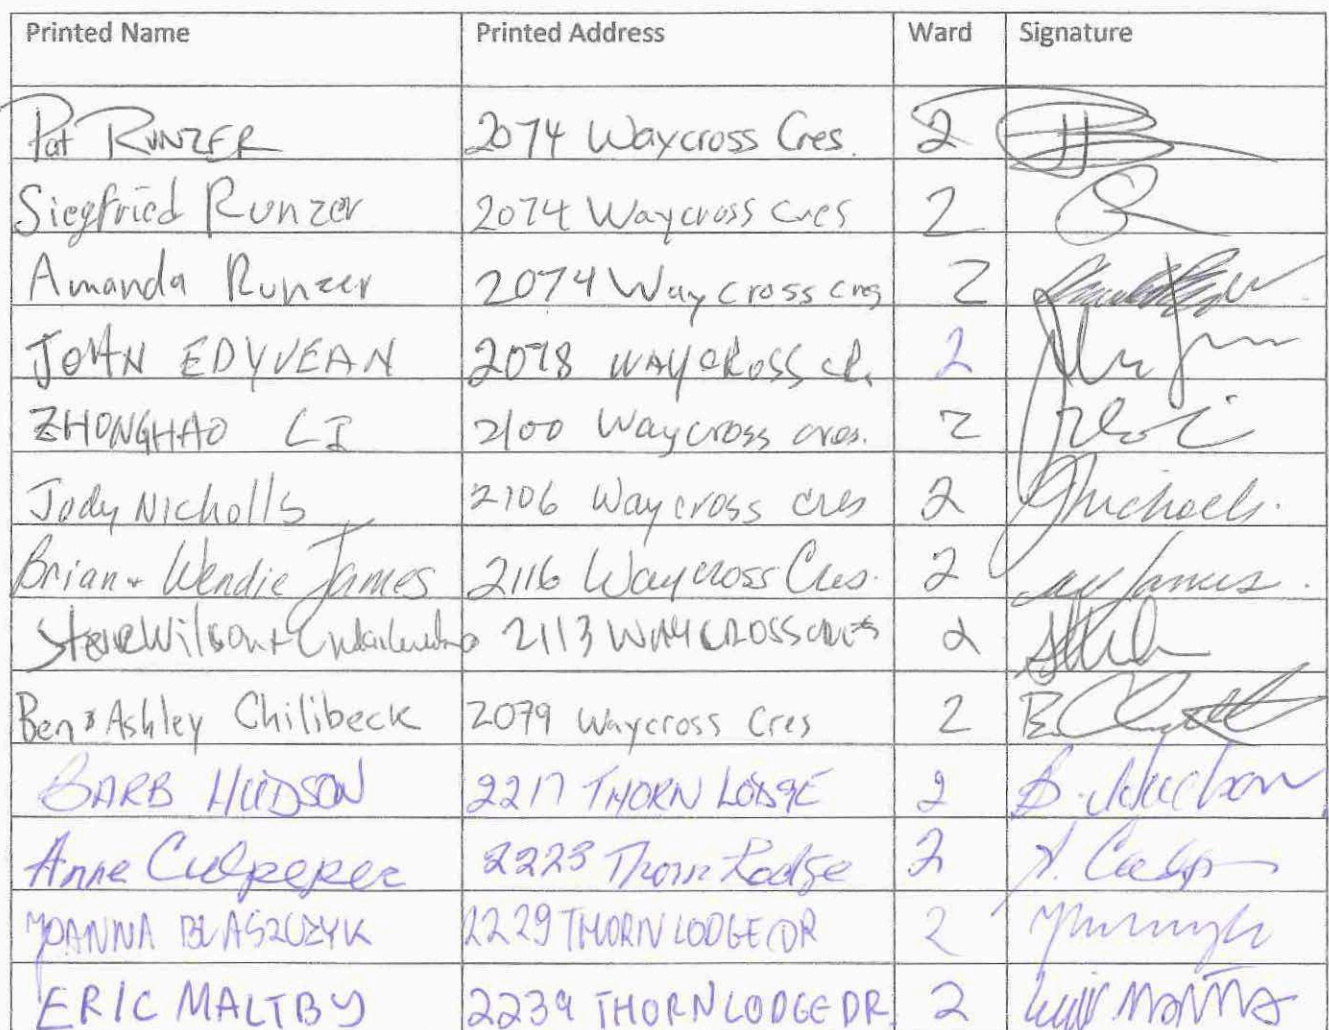 Printed Name Printed Address Ward Signature
Pat RUNZER 2074 Waycross Cres. 2
Siegfried Runzer 2074 Waycross Cres 2
Amanda Runzer 2074 Waycross cres 2
JOHN EDYVEAN 2078 WAYCROSS CR. 2
ZHONGHAO LI 2100 Waycross cres. 2
Jody Nicholls 2106 Waycross cres 2
Brian + Wendie James 2116 Waycross Cres. 2
Steve Wilson + 2113 WAYCROSS CRES 2
Ben & Ashley Chilibeck 2079 Waycross Cres 2
BARB HUDSON 2217 THORN LODGE 2 B. Hudson
Anne Culpeper 2223 Thorn Lodge 2
JOANNA BLASZCZYK 2229 THORN LODGE DR 2
ERIC MALTBY 2239 THORN LODGE DR. 2